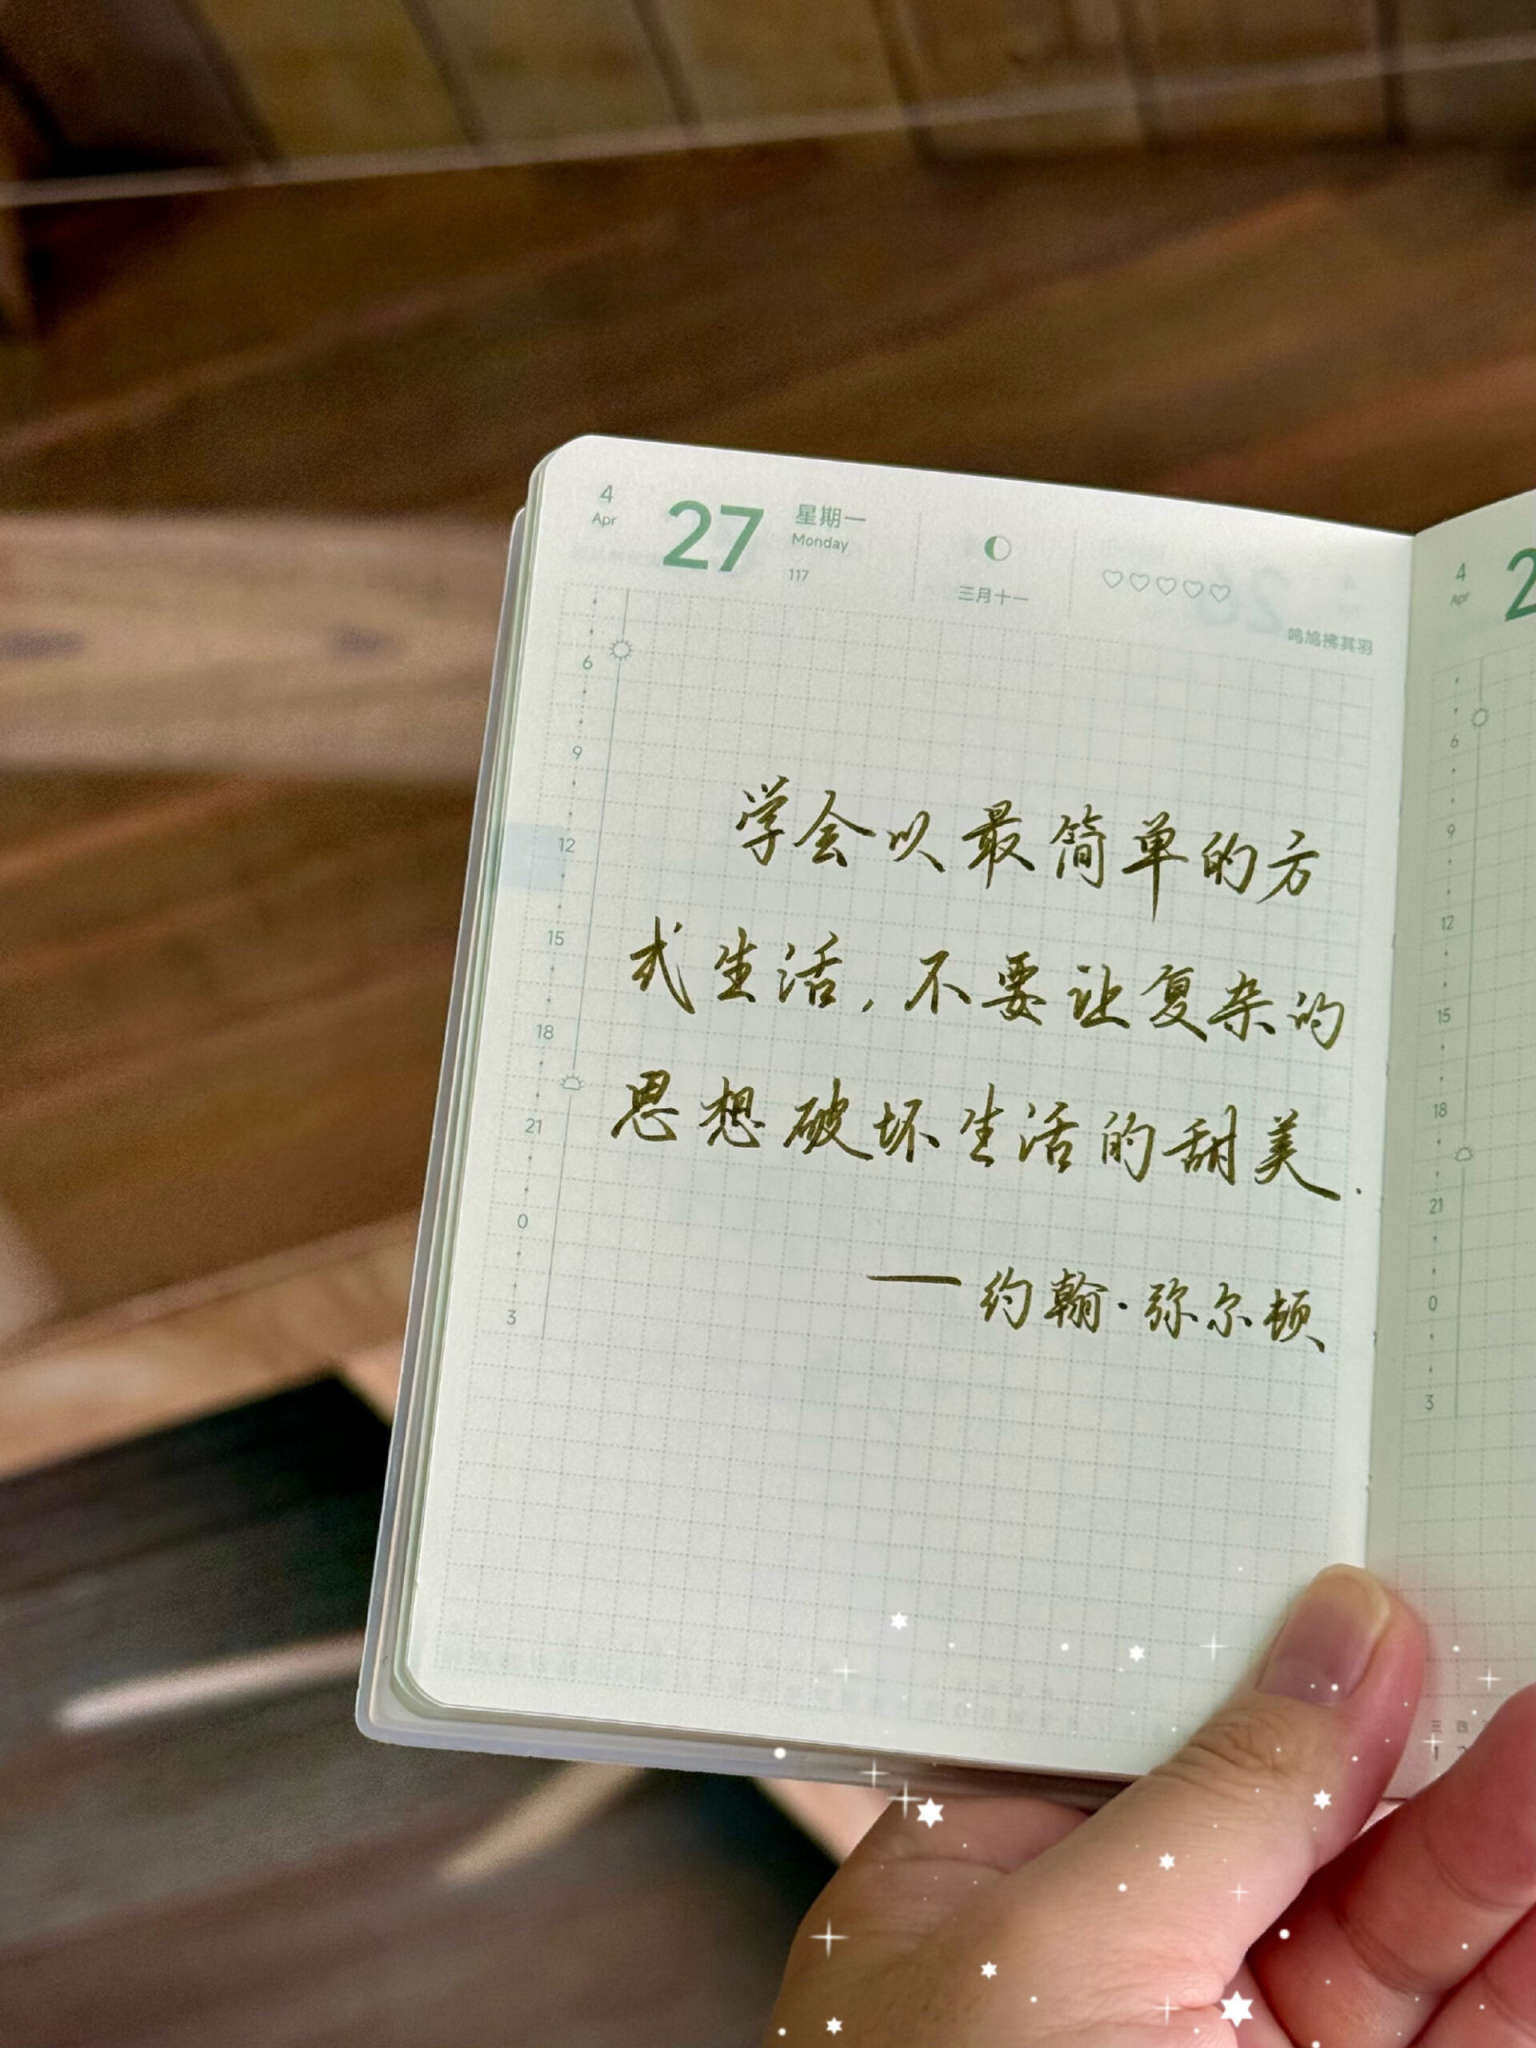 4
Apr
27
星期一
Monday
117
三月十一
鸣鸠拂其羽
6
9
12
15
18
21
0
3
学会以最简单的方
式生活,不要让复杂的
思想破坏生活的甜美.
—约翰·弥尔顿
4
Apr
2
6
9
12
15
18
21
0
3
三 四
1